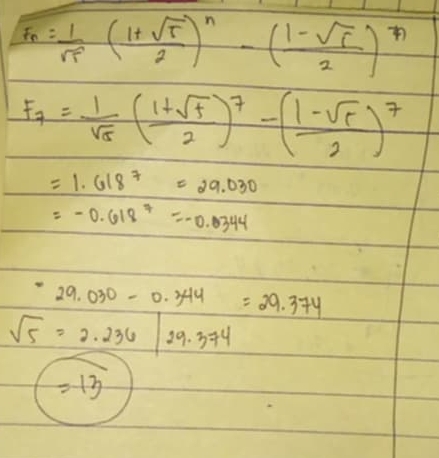 Fn = 1/√5 (1+√5/2)^n - (1-√5/2)^n
F7 = 1/√5 (1+√5/2)^7 - (1-√5/2)^7
= 1.618^7 = 29.030
= -0.618^7 = -0.0344
29.030 - 0.344 = 29.374
√5 = 2.236 | 29.374
= 13